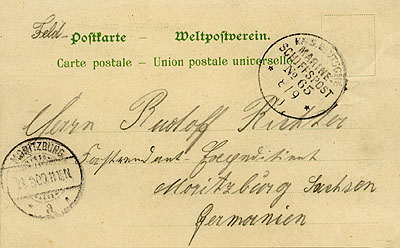 Feld-Postkarte — Weltpostverein.
Carte postale - Union postale universelle
KAIS. DEUTSCHE
MARINE-
SCHIFFSPOST
No 65
Herrn Rudolf Richter
Expedient
MORITZBURG
Moritzburg Sachsen
a
Germanien